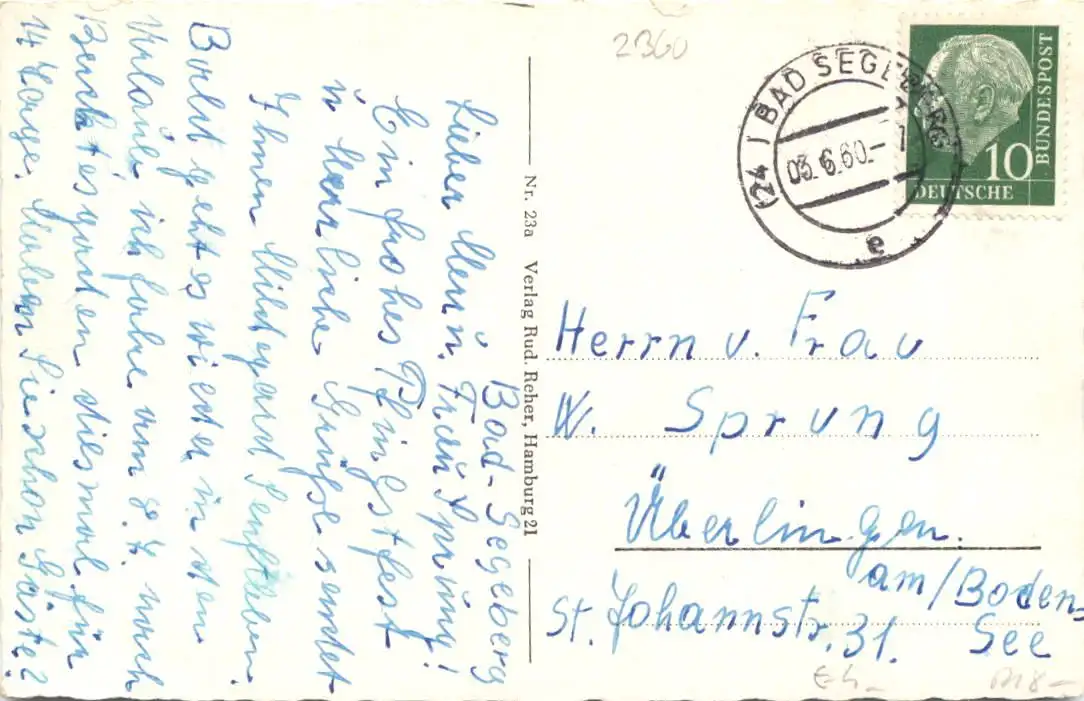 Bad-Segeberg
Lieber Herr u. Frau Sprung!
Ein frohes Pfingstfest
u herrliche Grüße sendet
Ihnen Hildegard Senftleben.
Bald geht es wieder in den
Urlaub, ich fahre am 8.7. nach
Berchtesgaden diesmal für
14 Tage. Haben Sie schon Gäste?
Nr. 23a Verlag Rud. Reher, Hamburg 21
2360
(24) BAD SEGEBERG
03.6.60.-
e
10
DEUTSCHE
BUNDESPOST
Herrn u. Frau
W. Sprung
Überlingen.
am/Boden-
St. Johannstr. 31. See